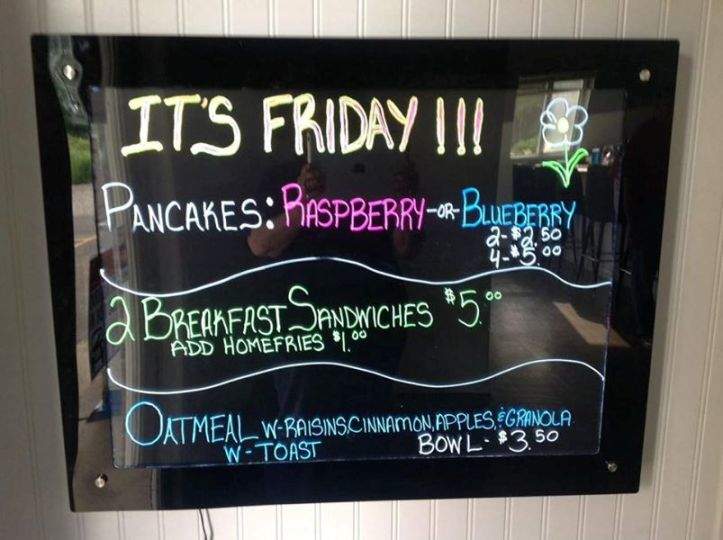 IT'S FRIDAY !!!
PANCAKES: RASPBERRY -OR- BLUEBERRY
2- $2.50
4- $5.00
2 BREAKFAST SANDWICHES $5.00
ADD HOMEFRIES $1.00
OATMEAL W-RAISINS, CINNAMON, APPLES, & GRANOLA
W-TOAST BOWL- $3.50